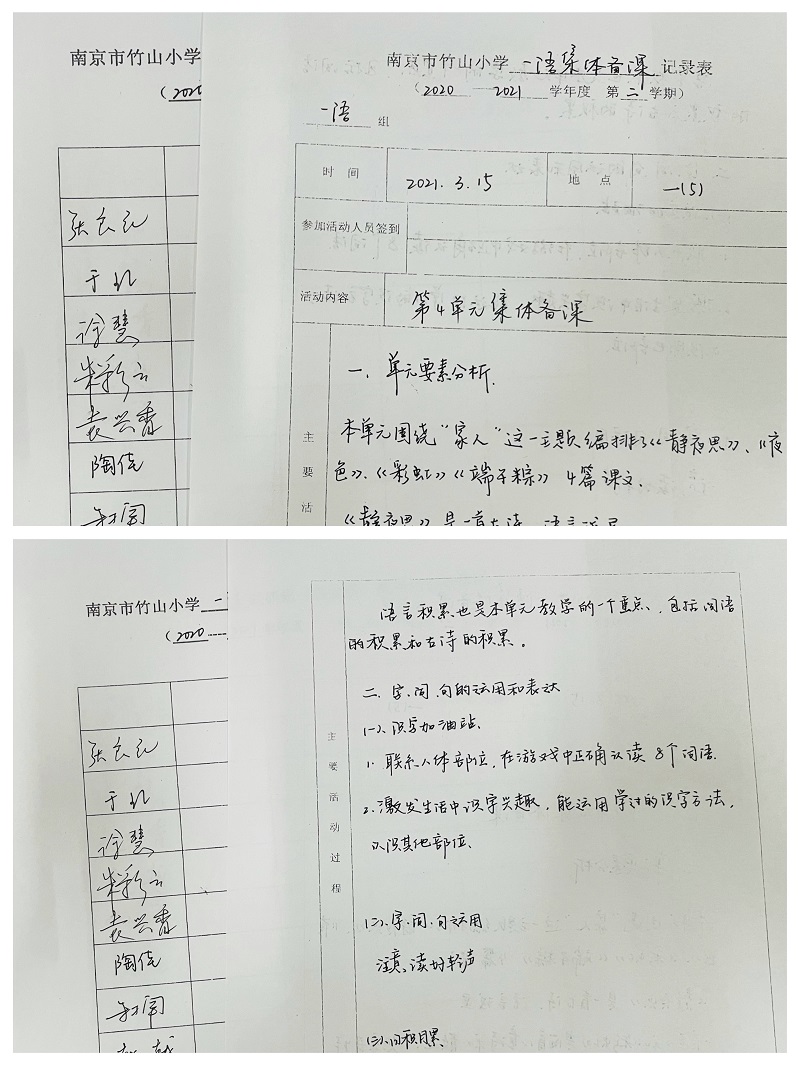 南京市竹山小学
(2020
于
徐慧
袁兴香
陶倩
南京市竹山小学 一语集体备课 记录表
(2020 — 2021 学年度 第 二 学期)
一语 组
时 间 2021.3.15 地 点 一(5)
参加活动人员签到
活动内容 第4单元集体备课
主要活
一、单元要素分析.
本单元围绕“家人”这一主题编排了《静夜思》、《夜
色》、《彩虹》《端午粽》4篇课文.
《静夜思》是一首古诗,语言
南京市竹山小学 二
(2020
于
徐慧
袁兴香
陶倩
主要活动过程
语言积累也是本单元教学的一个重点,包括词语
的积累和古诗的积累。
二、字、词、句的运用和表达
(一)、识字加油站.
1. 联系人体部位,在游戏中正确认读 8个词语.
2. 激发生活中识字兴趣,能运用学过的识字方法,
认识其他部位.
(二)、字、词、句运用
注意、读好轻声
(三)、日积月累.